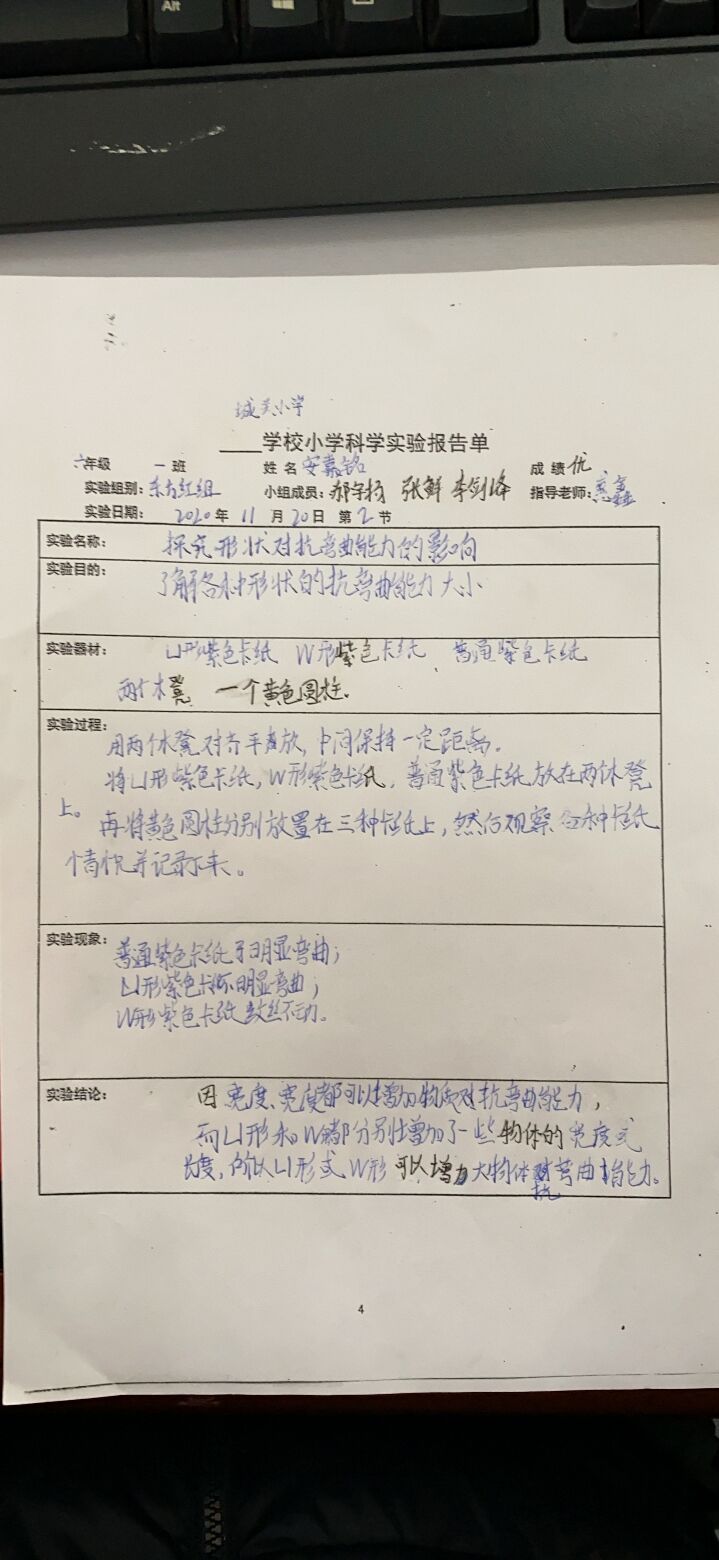 Alt
城关小学
____学校小学科学实验报告单
六年级 一班 姓名 安嘉铭 成绩 优
实验组别: 东方红组 小组成员: 郝宇扬 张鲜 李剑峰 指导老师:
实验日期: 2020年 11月20日 第2节
实验名称: 探究形状对抗弯曲能力的影响
实验目的: 了解各种形状的抗弯曲能力大小
实验器材: 凵形紫色卡纸 W形紫色卡纸 普通紫色卡纸
两个木凳 一个黄色圆柱.
实验过程: 用两个木凳对齐平放,中间保持一定距离.
将凵形紫色卡纸,W形紫色卡纸,普通紫色卡纸放在两木凳
上。再将黄色圆柱分别放置在三种卡纸上,然后观察各种卡纸
情况并记录下来。
实验现象: 普通紫色卡纸 明显弯曲;
凵形紫色卡纸不明显弯曲;
W形紫色卡纸纹丝不动.
实验结论: 因宽度、宽度都可以增加物质对抗弯曲能力,
而凵形和W 都分别增加了一些物体的宽度或
长度,所以凵形或W形可以增加大物体抗弯曲 能力.
4